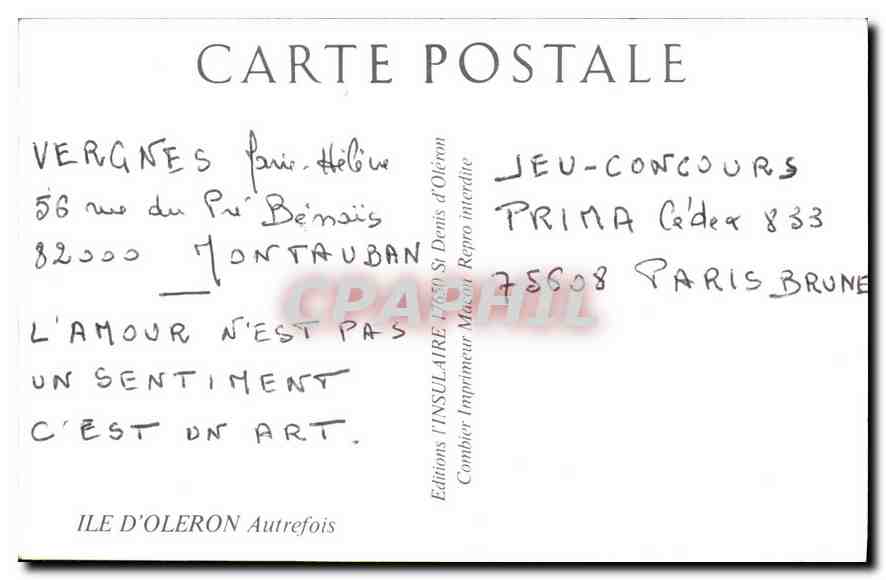 CARTE POSTALE
VERGNES Marie-Hélène
56 rue du Pré Bénaïs
82000 MONTAUBAN
L'AMOUR N'EST PAS
UN SENTIMENT
C'EST UN ART.
ILE D'OLERON Autrefois
Editions l'INSULAIRE 17650 St Denis d'Oléron
Combier Imprimeur Macon Repro interdite
JEU-CONCOURS
PRIMA Cédex 833
75608 PARIS BRUNE
CPAPHIL